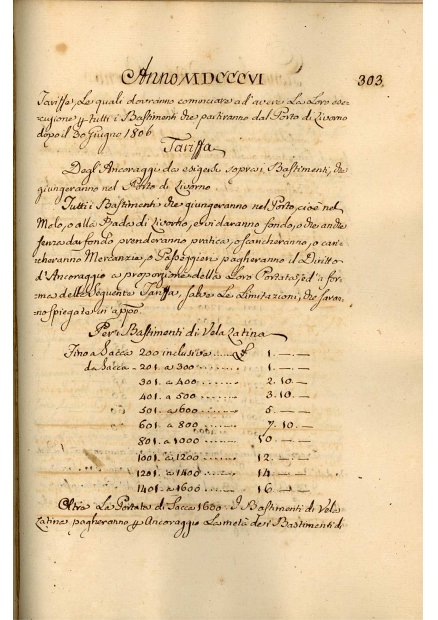 Anno MDCCCVI 303
Tariffe, Le quali dovranno cominciare ad avere La Loro ese-
cuzione p tutti i Bastimenti che partiranno dal Porto di Livorno
dopo il 30 Giugno 1806
Tariffa
Degli Ancoraggi da esigersi sopra i Bastimenti, che
giungeranno nel Porto di Livorno
Tutti i Bastimenti che giungeranno nel Porto, cioè nel
Molo, o alla Rada di Livorno, e vi daranno fondo, o che anche
senza dar fondo prenderanno pratica, o scaricheranno, o cari-
cheranno Mercanzie, o Passeggieri pagheranno il Diritto
d'Ancoraggio a proporzione della Loro Portata, ed a for-
ma della Seguente Tariffa, salve Le Limitazioni, che saran-
no spiegate in appo
Per i Bastimenti di Vela Latina
Fino a Sacca 200 inclusive ...... 1. — —
da Sacca - 201. a 300 ....... 1. — —
301. a 400 ....... 2. 10. —
401. a 500 ....... 3. 10. —
501. a 600 ....... 5. — —
601. a 800 ....... 7. 10. —
801. a 1000 ....... 10. — —
1001. a 1200 ....... 12. — —
1201. a 1400 ....... 14. — —
1401. a 1600 ....... 16. — —
Oltre La Portata di Sacca 1600. I Bastimenti di Vela
Latina pagheranno p Ancoraggio La metà dei Bastimenti di